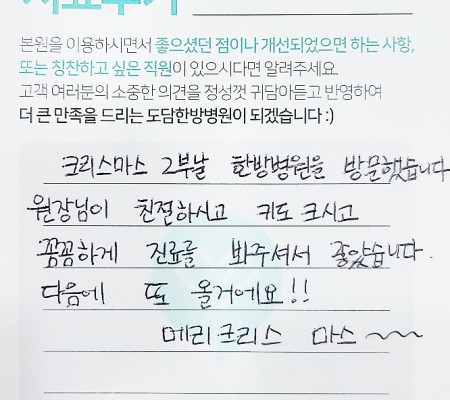 치료후기
본원을 이용하시면서 좋으셨던 점이나 개선되었으면 하는 사항,
또는 칭찬하고 싶은 직원이 있으시다면 알려주세요.
고객 여러분의 소중한 의견을 정성껏 귀담아듣고 반영하여
더 큰 만족을 드리는 도담한방병원이 되겠습니다 :)
크리스마스 2부날 한방병원을 방문했습니다
원장님이 친절하시고 키도 크시고
꼼꼼하게 진료를 봐주셔서 좋았습니다.
다음에 또 올거에요!!
메리크리스 마스~~~